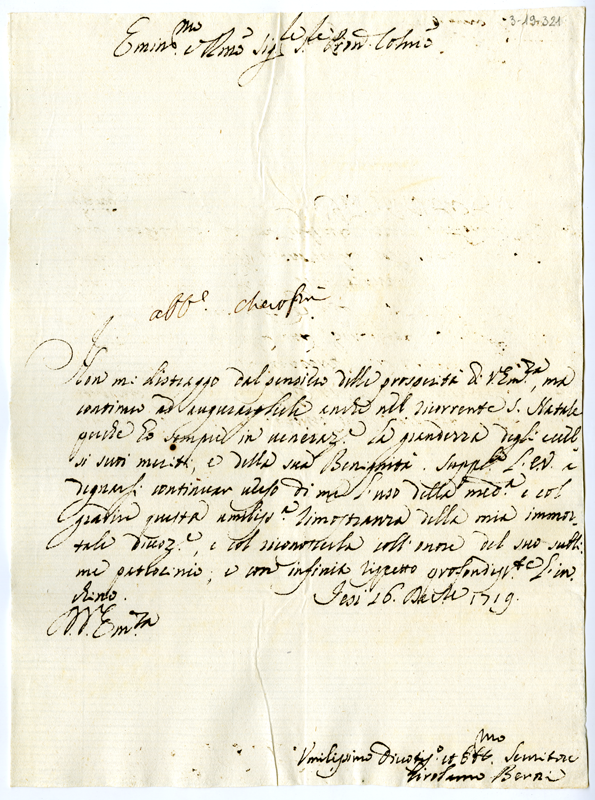 3-19-321
Emin.mo e Rmo Sig.le Sig.
abb.e
Non mi distraggo dal pensiero delle prosperità di V. Em.za, ma
continuo ad augurargliele anche nel ricorrente S. Natale
perche ho sempre in veneraz.e la grandezza degli eccel
si suoi meriti, e della sua Benignità. Suppl.o l'E.V. à
degnarsi continuar verso di me l'uso della med.a e col
gradire questa umiliss.a dimostranza della mia immor-
tale divoz.e, e col riconoscerla coll'onore del suo subli-
me patrocinio; e con infinito rispetto profondiss.te l'in
chino.
Jesi 16. Dbre 1719.
V. Em.za
Umilissimo Divotis.o et Obb.mo Servitore
Girolamo